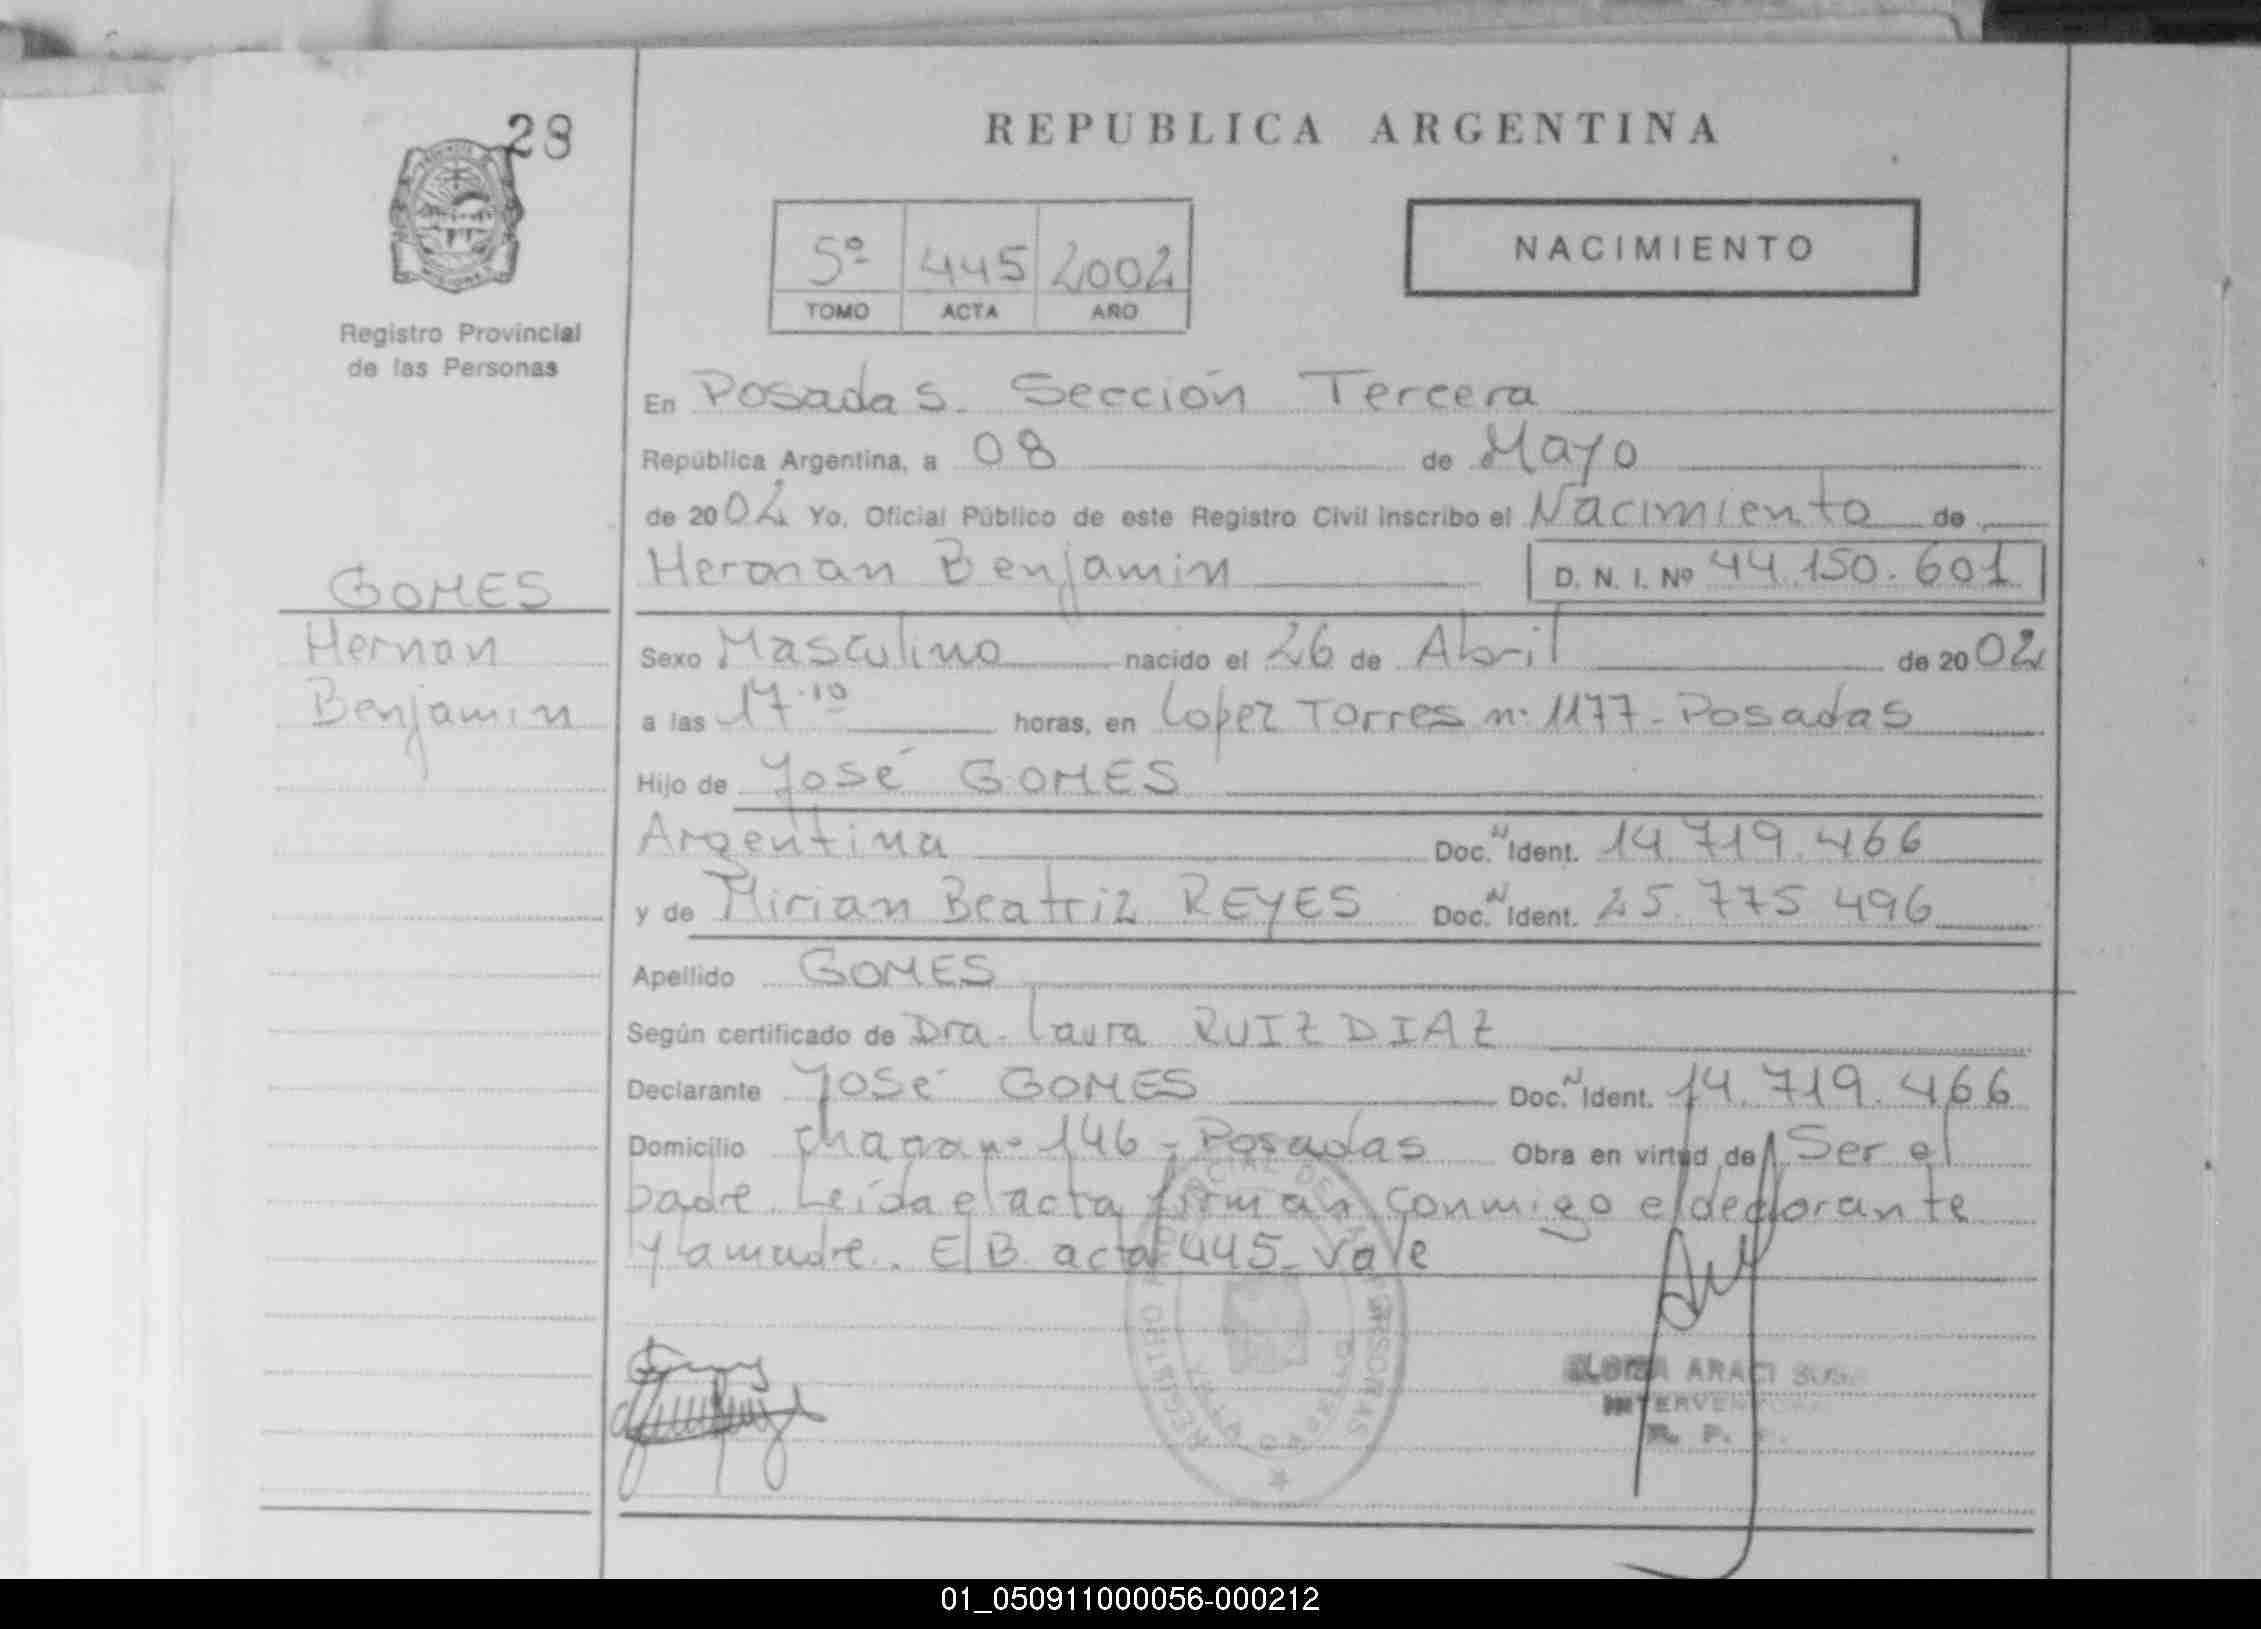 28
REPUBLICA ARGENTINA
NACIMIENTO
5º 445 2002
TOMO ACTA AÑO
Registro Provincial
de las Personas
En Posadas. Sección Tercera
República Argentina, a 08 de Mayo
de 2002 Yo, Oficial Público de este Registro Civil inscribo el Nacimiento de
Hernan Benjamin D. N. I. Nº 44.150.601
GOMES
Hernan
Benjamin
Sexo Masculino nacido el 26 de Abril de 2002
a las 17.10 horas, en Lopez Torres nº 1177 - Posadas
Hijo de José GOMES
Argentina Doc. N Ident. 14.719.466
y de Mirian Beatriz REYES Doc. N Ident. 25.775.496
Apellido GOMES
Según certificado de Dra. Laura RUIZ DIAZ
Declarante José GOMES Doc. N Ident. 14.719.466
Domicilio chacra nº 146 - Posadas Obra en virtud de Ser el
padre. Leída el acta firman conmigo el declarante
y la madre. E/B. acta 445 - Vale
REGISTRO PROVINCIAL DE LAS PERSONAS
ARACI
INTERVENTORA
R. P. P.
01_050911000056-000212